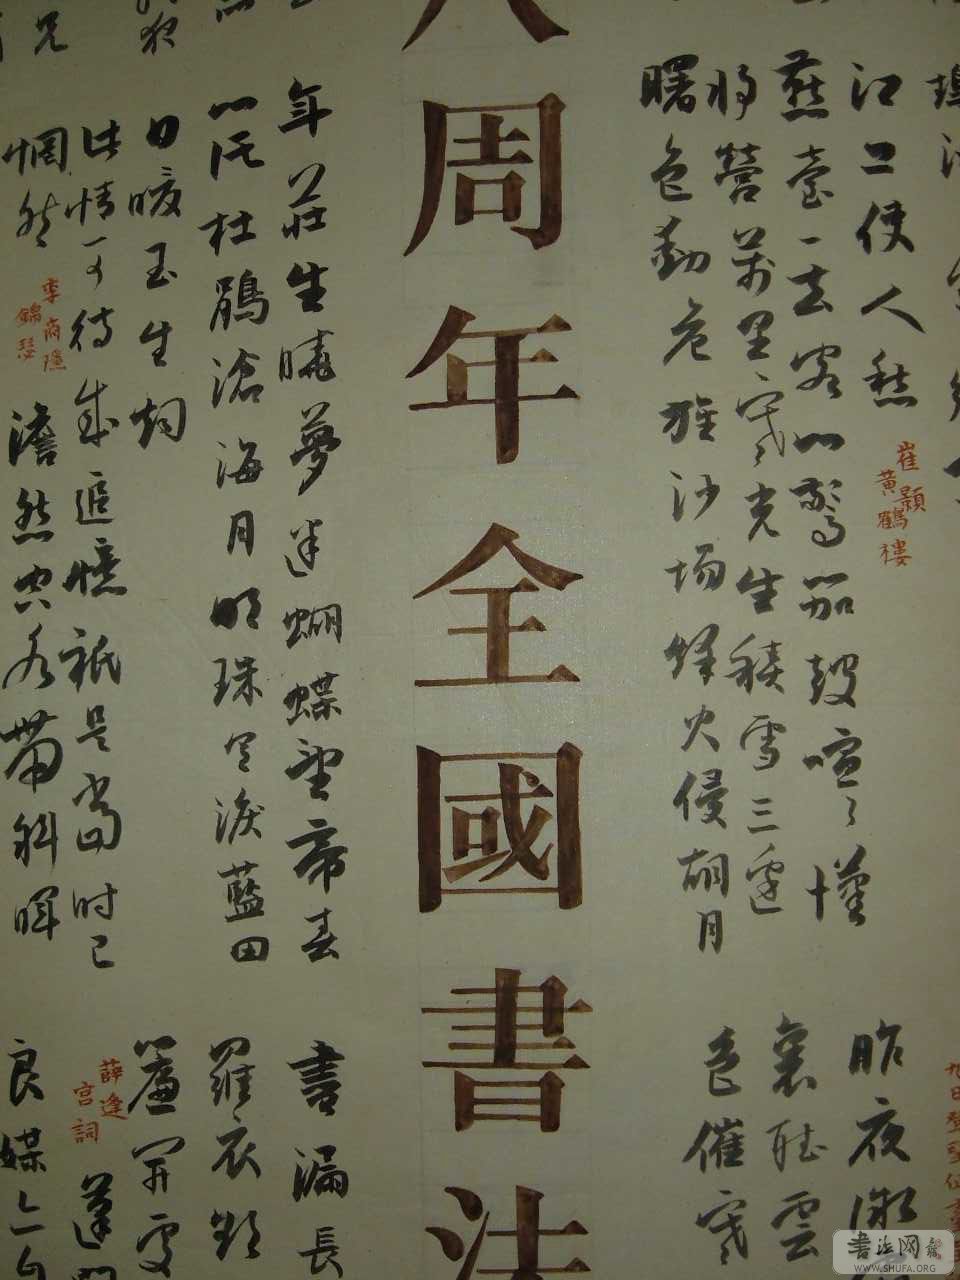 江上使人愁
崔顥
黃鶴樓
燕臺一去客心驚笳鼓喧喧漢
將營萬里寒光生積雪三邊
曙色動危旌沙場烽火侵胡月
昨夜微
裏聽雲
色催寒
八周年全國書法
年莊生曉夢迷蝴蝶望帝春
心托杜鵑滄海月明珠有淚藍田
日暖玉生烟
此情可待成追憶祇是當時已
惘然
李商隱
錦瑟
澹然空水帶斜暉
書漏長
羅衣
簾開
薛逢
宮詞
蓬門
良媒
書法网
WWW.SHUFA.ORG